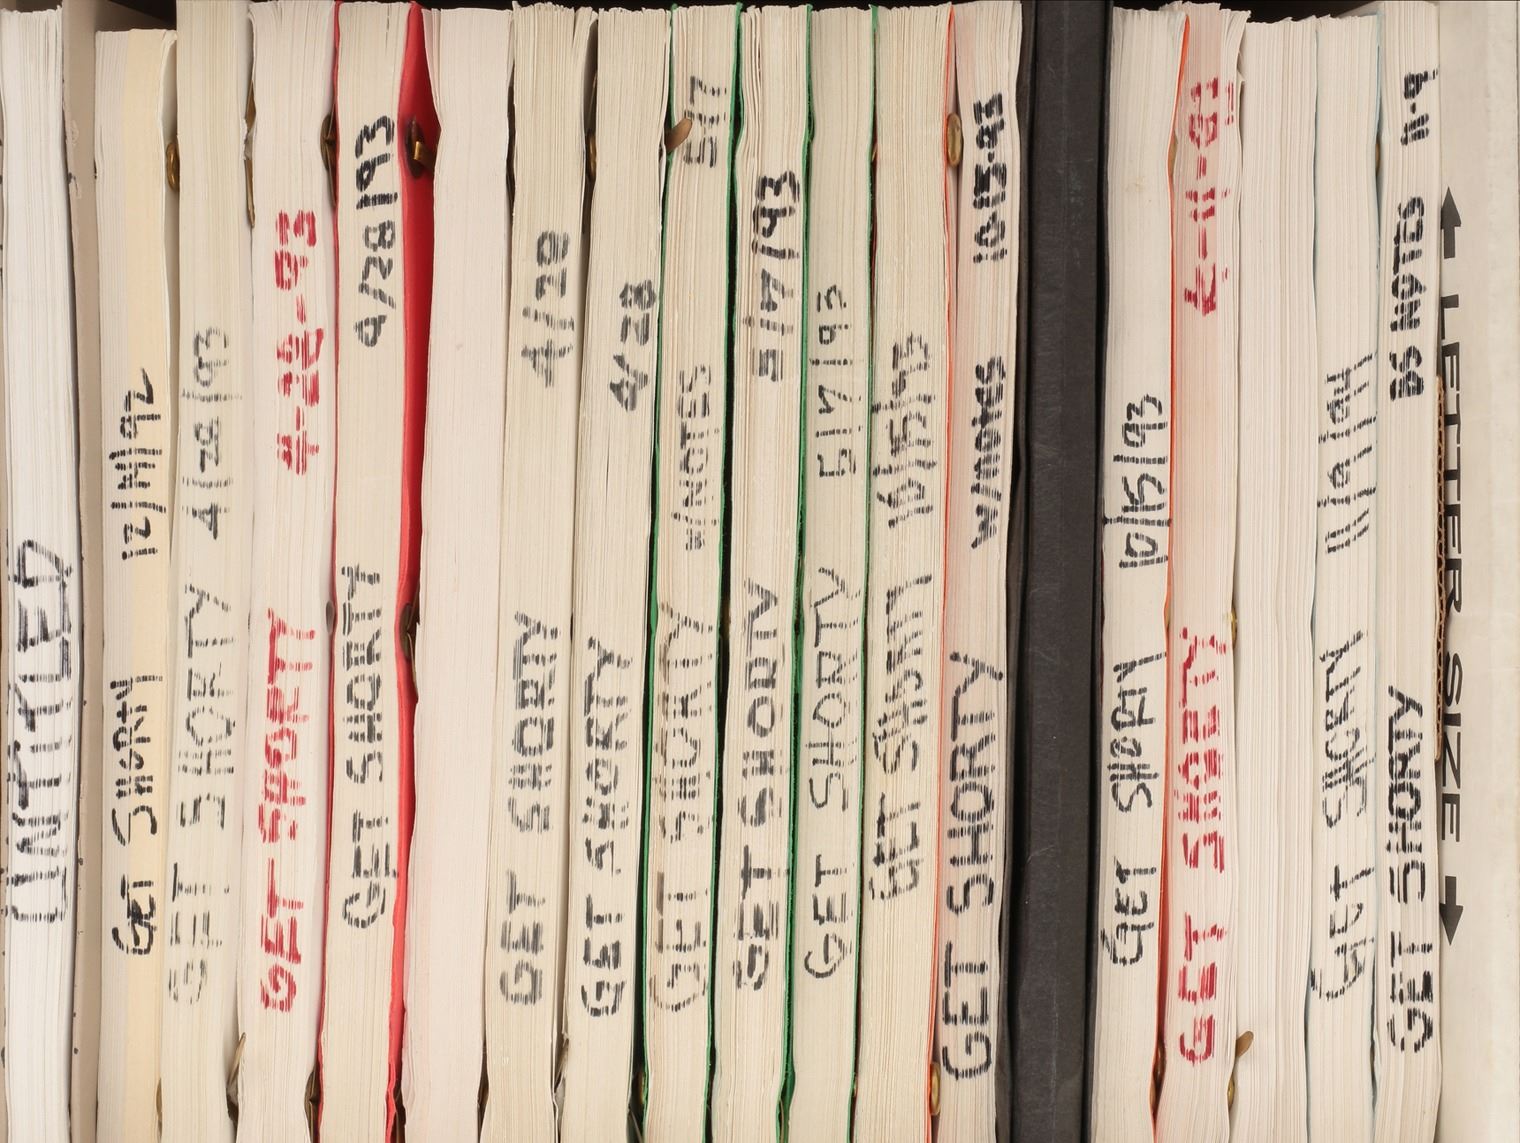 UNTITLED
GET SHORTY 12/14/92
GET SHORTY 4/28/93
GET SHORTY 4-26-93
GET SHORTY 4/28/93
GET SHORTY 4/28
GET SHORTY 4/28
GET SHORTY w/NOTES 5/17
GET SHORTY 5/17/93
GET SHORTY 5/17/93
GET SHORTY 10/15/93
GET SHORTY w/notes 10-15-93
GET SHORTY 10/15/93
GET SHORTY
GET SHORTY 11/9/94
GET SHORTY BS NOTES 11-9
LETTER SIZE